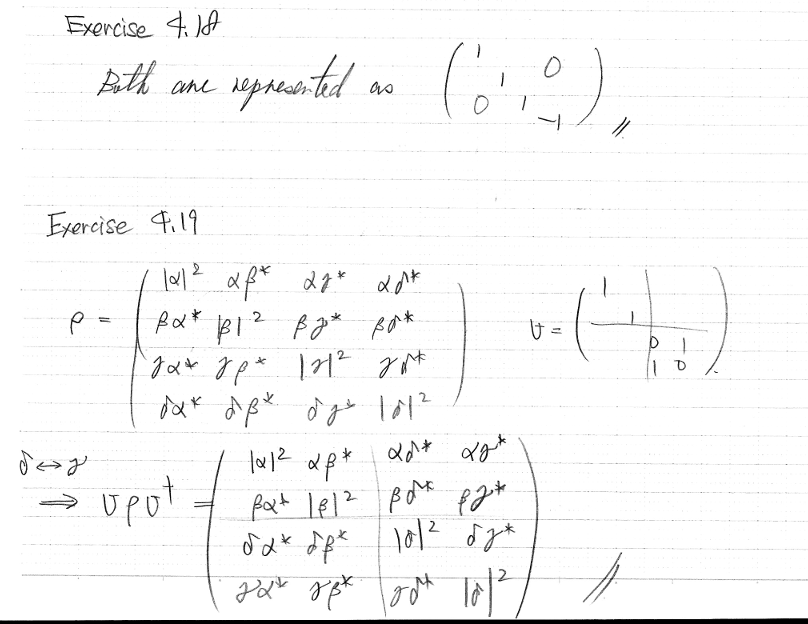 Exercise 4.18
Both are represented as ( 1 0
1
0 1
-1 ) //
Exercise 4.19
ρ = ( |α|² αβ* αγ* αδ*
βα* |β|² βγ* βδ*
γα* γβ* |γ|² γδ*
δα* δβ* δγ* |δ|² )
U = ( 1
1
0 1
1 0 ).
δ↔γ
⟹ UρU† = ( |α|² αβ* αδ* αγ*
βα* |β|² βδ* βγ*
δα* δβ* |δ|² δγ*
γα* γβ* γδ* |δ|² ) //